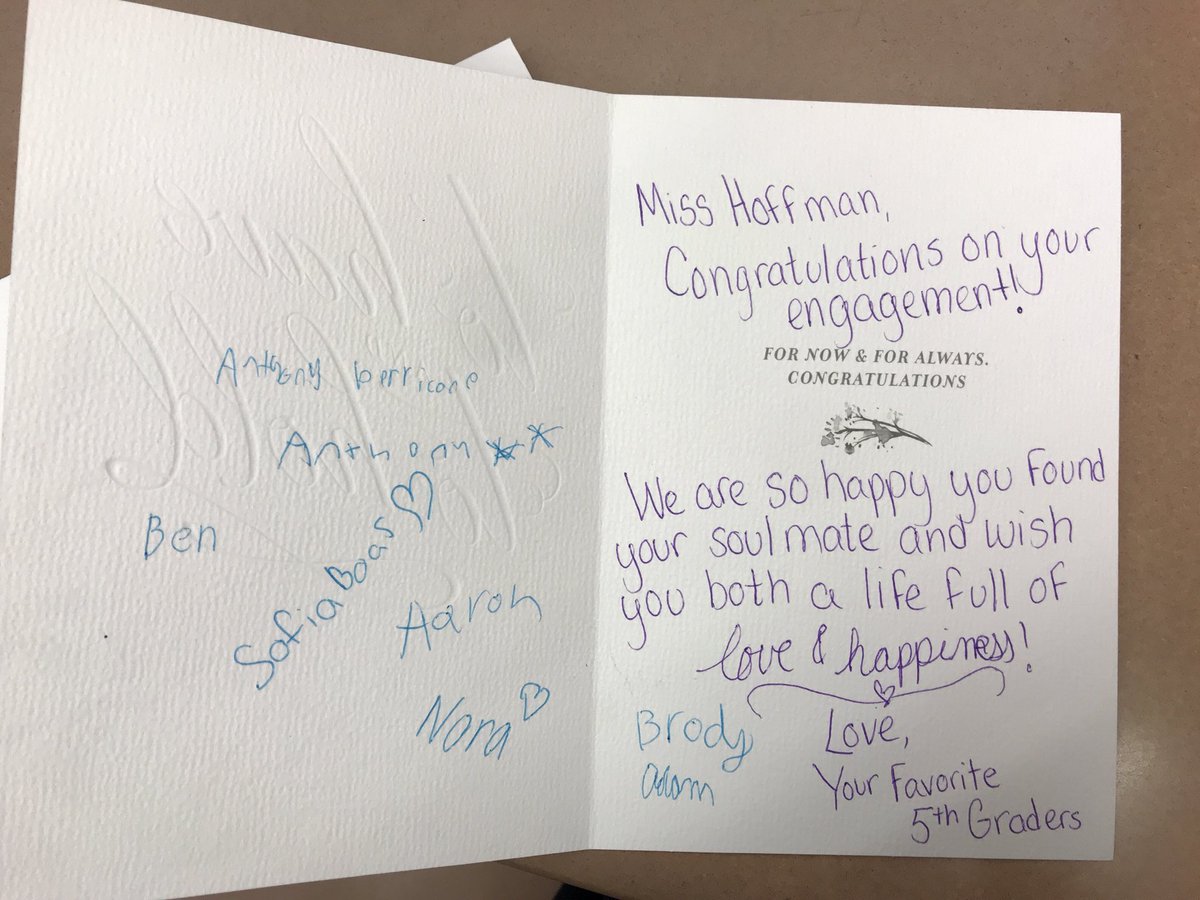 Anthony berricone
Anthony
Ben
Sofia Boas
Aaron
Nora
Miss Hoffman,
Congratulations on your
engagement!
FOR NOW & FOR ALWAYS.
CONGRATULATIONS
We are so happy you found
your soulmate and wish
you both a life full of
love & happiness!
Brody
Adam
Love,
Your Favorite
5th Graders